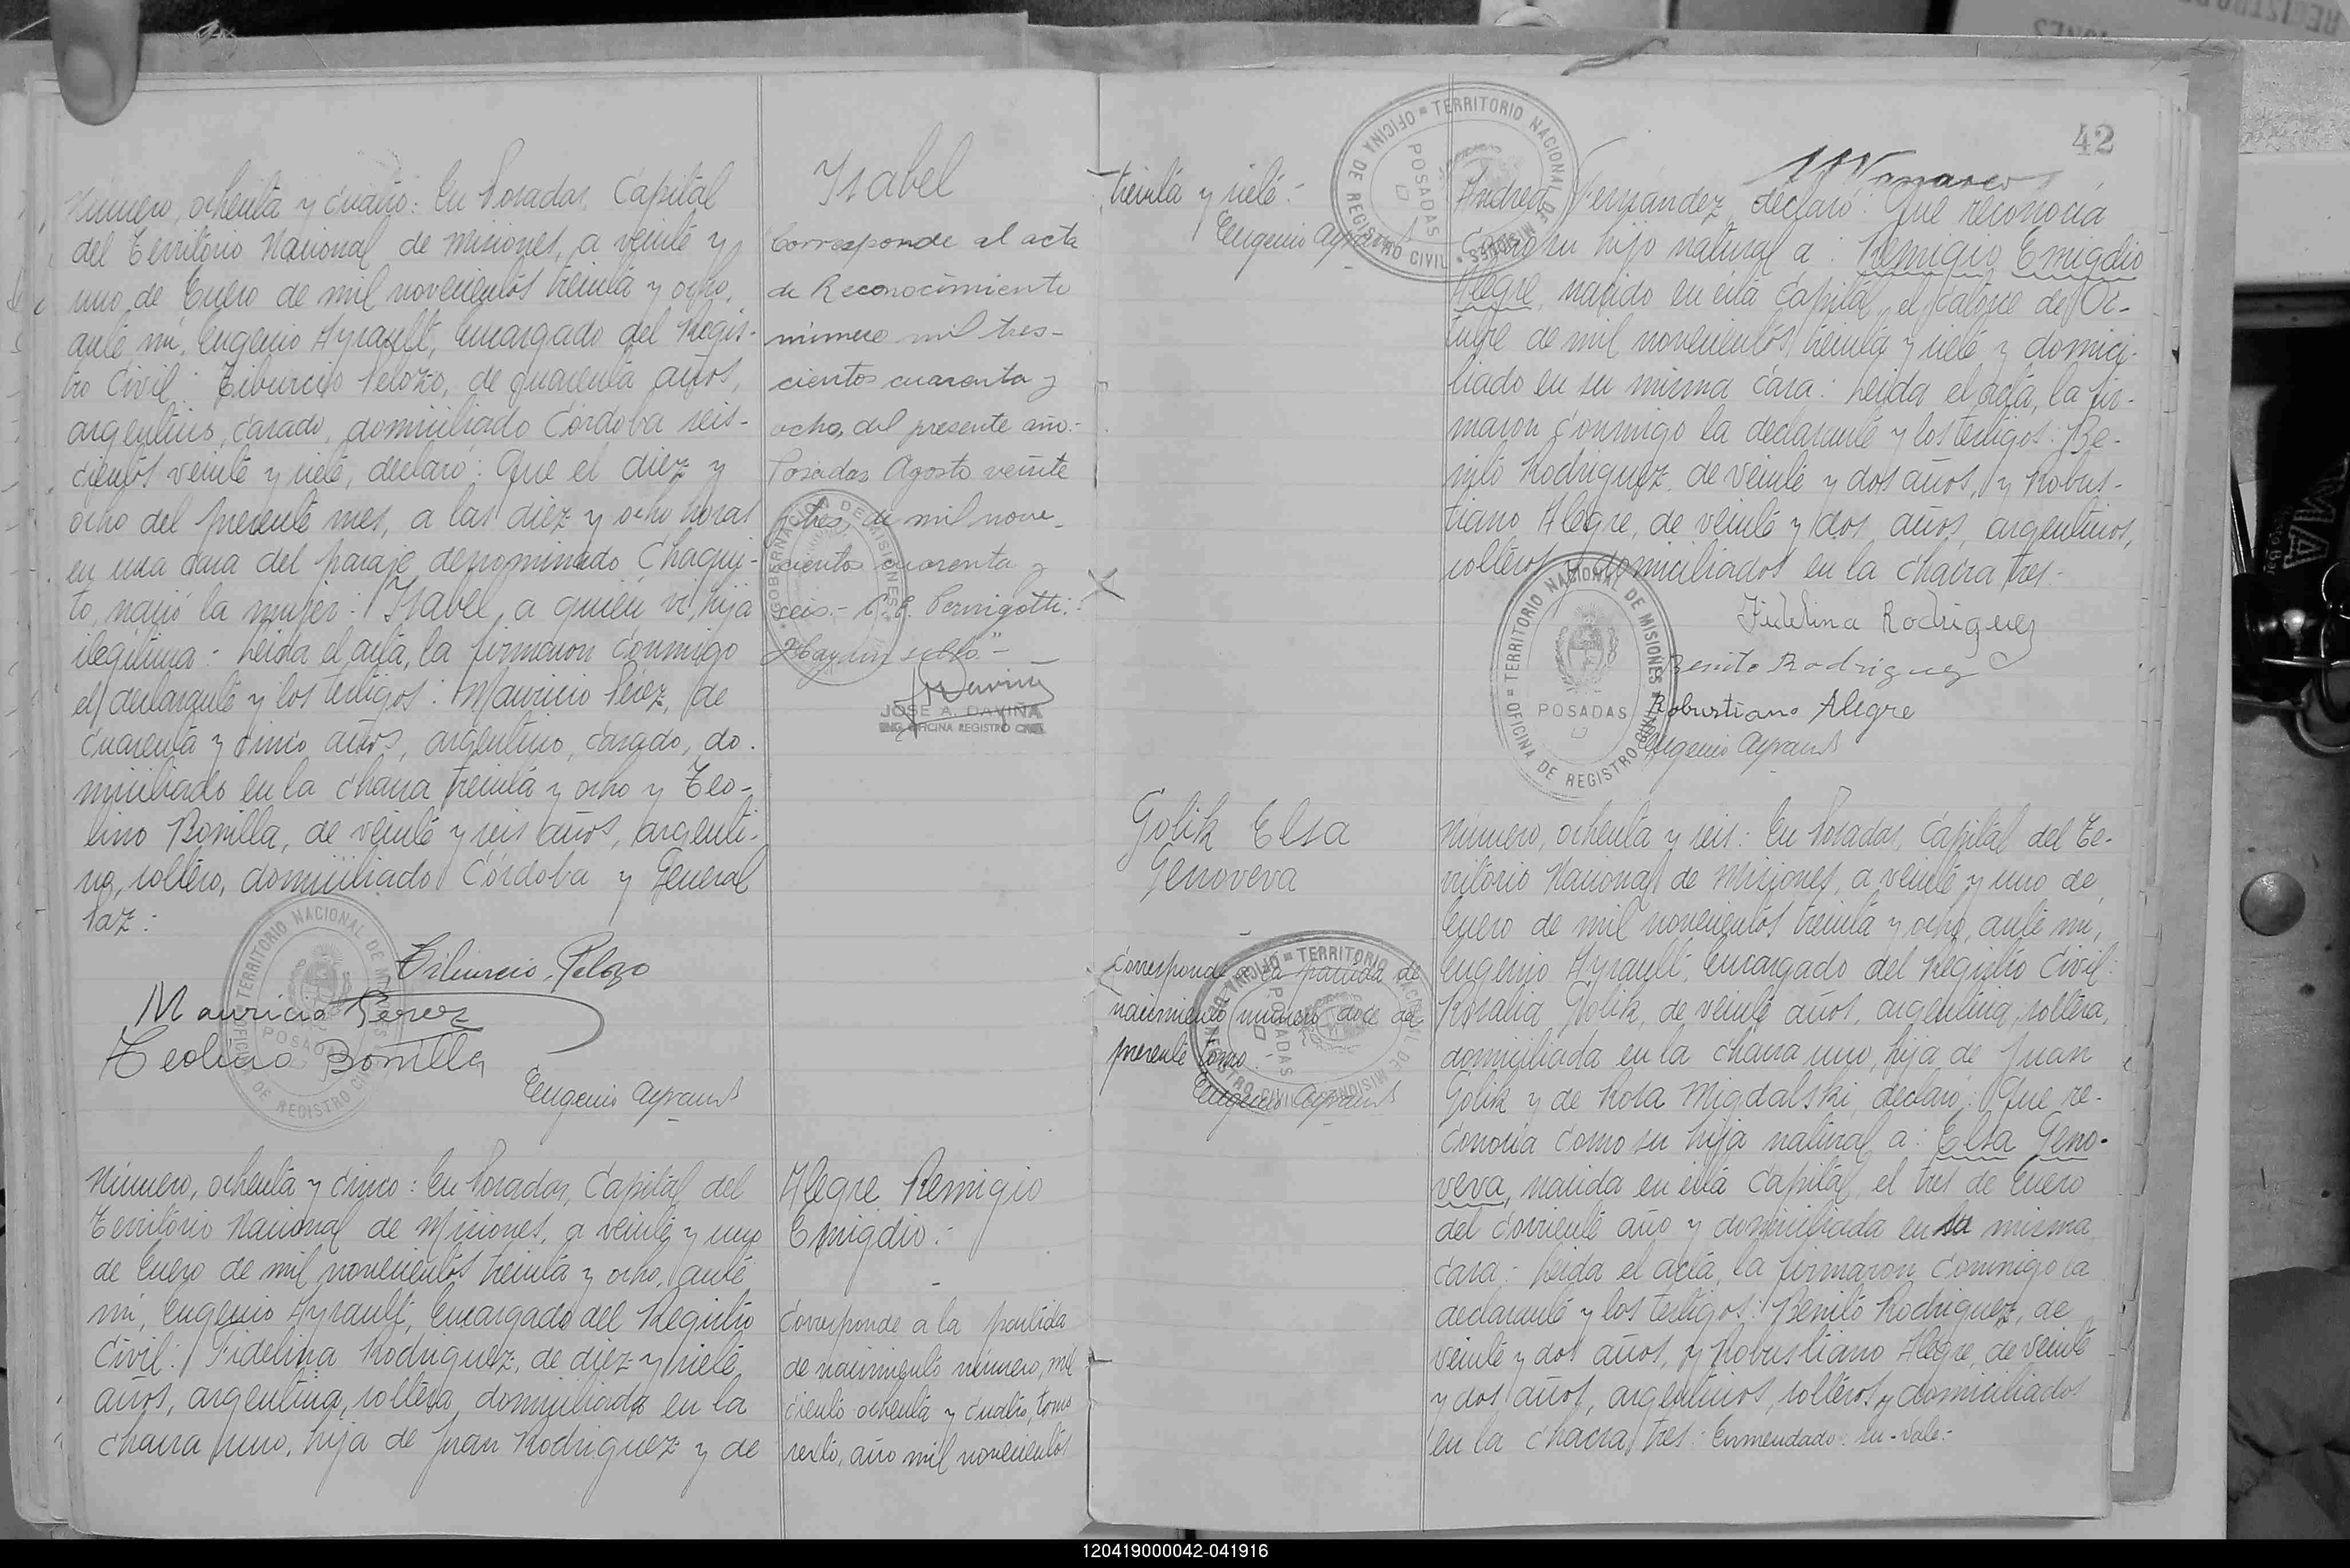 Número, ochenta y cuatro: En Posadas, Capital
del Territorio Nacional de Misiones, a veinte y
uno de Enero de mil novecientos treinta y ocho,
ante mi, Eugenio Ayrault, Encargado del Regis-
tro Civil: Tiburcio Pelozo, de cuarenta años,
argentino, casado, domiciliado Córdoba seis-
cientos veinte y siete, declaró: Que el diez y
ocho del presente mes, a las diez y ocho horas
en una casa del paraje denominado Chaqui-
to, nació la mujer: Isabel, a quien vi, hija
ilegítima: Leida el acta, la firmaron conmigo
el declarante y los testigos: Mauricio Pérez, de
cuarenta y cinco años, argentino, casado, do-
miciliado en la chacra treinta y ocho y Teo-
lino Bonilla, de veinte y seis años, argenti-
no, soltero, domiciliado Córdoba y General
Paz:
Tiburcio Pelozo
Mauricio Perez
Teolino Bonilla
Eugenio Ayrault
Isabel
Corresponde al acta
de Reconocimiento
número mil tres-
cientos cuarenta y
ocho, del presente año.-
Posadas Agosto veinte
y tres, de mil nove-
cientos cuarenta y
seis.-
Hay un sello"-
JOSE A. DAVIÑA
ENC. OFICINA REGISTRO CIVIL
GOBERNACION DE MISIONES
TERRITORIO NACIONAL DE MISIONES
OFICINA DE REGISTRO CIVIL
POSADAS
Número, ochenta y cinco: En Posadas, Capital del
Territorio Nacional de Misiones, a veinte y uno
de Enero de mil novecientos treinta y ocho, ante
mi, Eugenio Ayrault, Encargado del Registro
Civil: Fidelina Rodriguez, de diez y siete
años, argentina, soltera, domiciliada en la
chacra uno, hija de Juan Rodriguez y de
Alegre Remigio
Emigdio:-
Corresponde a la partida
de nacimiento número, mil
ciento ochenta y cuatro, tomo
sexto, año mil novecientos
treinta y siete:-
Eugenio Ayrault
TERRITORIO NACIONAL DE MISIONES
OFICINA DE REGISTRO CIVIL
POSADAS
42
Andrea Fernández, declaró: Que reconocía
como su hijo natural a: Remigio Emigdio
Alegre, nacido en esta Capital, el catorce de Oc-
tubre de mil novecientos treinta y siete y domici-
liado en su misma casa: Leida el acta, la fir-
maron conmigo la declarante y los testigos: Be-
nito Rodriguez, de veinte y dos años, y Robus-
tiano Alegre, de veinte y dos años, argentinos,
solteros y domiciliados en la chacra tres:-
Fidelina Rodriguez
Benito Rodriguez
Robustiano Alegre
Eugenio Ayrault
TERRITORIO NACIONAL DE MISIONES
OFICINA DE REGISTRO CIVIL
POSADAS
Golik Elsa
Genoveva
Corresponde a la partida de
nacimiento número doce del
presente tomo.
Eugenio Ayrault
TERRITORIO NACIONAL DE MISIONES
OFICINA DE REGISTRO CIVIL
POSADAS
Número, ochenta y seis: En Posadas, Capital del Te-
rritorio Nacional de Misiones, a veinte y uno de
Enero de mil novecientos treinta y ocho, ante mi,
Eugenio Ayrault, Encargado del Registro Civil:
Rosalia Golik, de veinte años, argentina, soltera,
domiciliada en la chacra uno, hija de Juan
Golik y de Rosa Migdalski, declaró: Que re-
conocía como su hija natural a: Elsa Geno-
veva, nacida en esta Capital, el tres de Enero
del corriente año y domiciliada en su misma
casa: Leida el acta, la firmaron conmigo la
declarante y los testigos: Benito Rodriguez, de
veinte y dos años, y Robustiano Alegre, de veinte
y dos años, argentinos, solteros y domiciliados
en la chacra tres: Enmendado: su-Vale:-
120419000042-041916